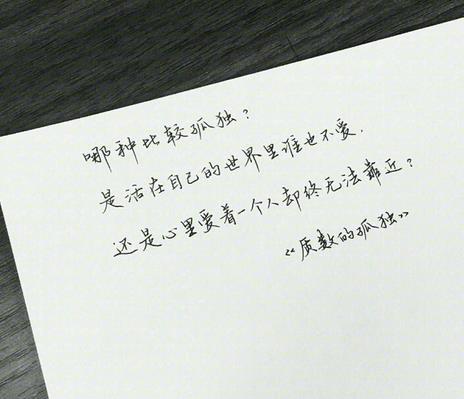 哪种比较孤独？
是活在自己的世界里谁也不爱.
还是心里爱着一个人却终无法靠近？
《质数的孤独》